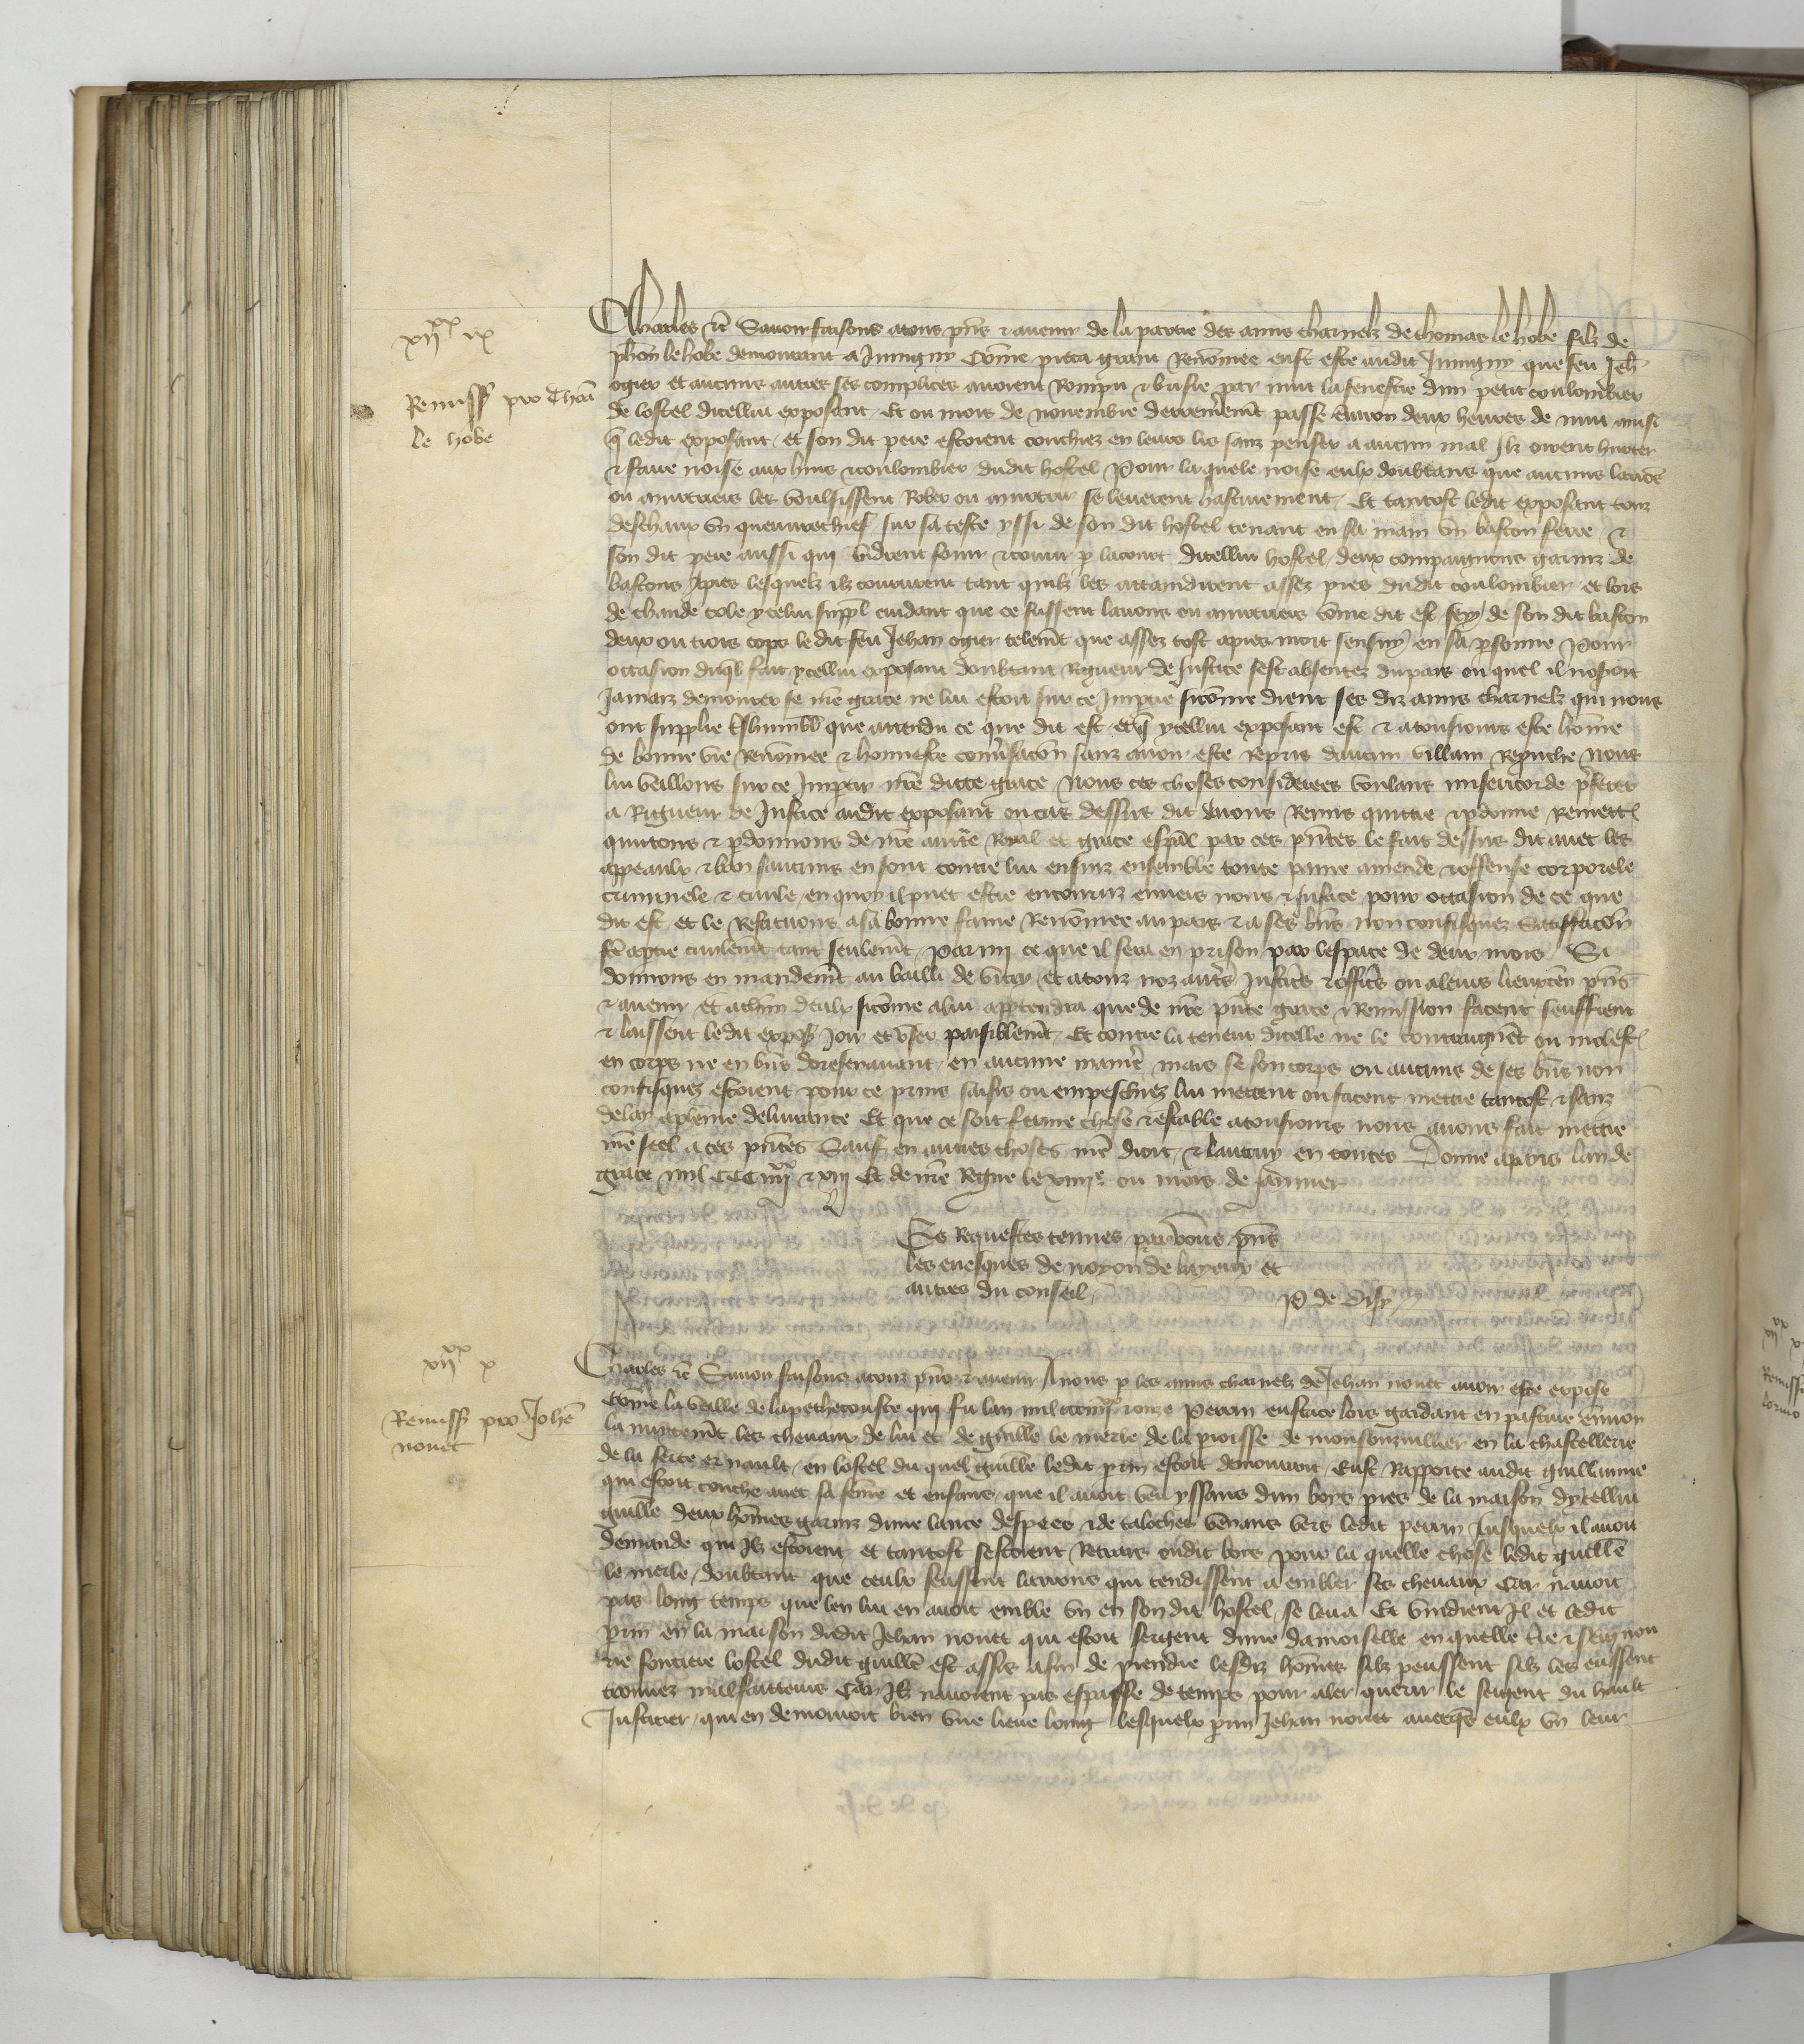 xii^xx ix
Remiss pro Thom
le hobe
Charles etc Savoir faisons a tous pñs et avenir de la partie des amis charnelz de thomas le hobe filz de
le hobe demourant a Juvigny Cõme pieca grant Renõmee eust este audit Juvigny que feu Jeh
ogier et aucuns autres ses complices avoient Rompu et brisie par nuit la fenestre dun petit coulombier
de lostel dicellui exposant Et ou mois de novembre derrenierem̃t passe environ deux heures de nuit ainsi
q̃ ledit exposant et son dit pere estoient couchiez en leurs lis sanz penser a aucun mal Ilz oirent hurter
et faire noise aux huis et coulombier dudit hostel Pour laquele noise eulx doubtans que aucuns larrõs
ou murtriers les voulsissent Rober ou murtrir se leverent hastivement Et tantost ledit exposant touz
deschaux un queuvrechief sur sa teste yssi de son dit hostel tenant en sa main un baston ferre et
son dit pere aussi qui virent fouir et courir p lacourt dicellui hostel deux compaignons garniz de
bastons Apres lesquelz ilz coururent tant quilz les attaindirent assez pres dudit coulombier et lors
de chaude cole ycelui suppl cuidant que ce fussent larrons ou murtriers cõme dit est fery de son dit baston
deux ou trois cops ledit feu Jehan ogier telem̃t que assez tost apres mort sensuy en sa p̃sonne Pour
occasion duq̃l fait ycellui exposant doubtant Rigueur de Justice sest absentez du pais ou quel il noseroit
Jamaiz demourer se nr̃e grace ne lui estoit sur ce Impartie sicõme dient ses diz amis charnelz qui nous
ont supplie t̃shumbl̃ que attendu ce que dit est et q̃ ycellui exposant est et a tousiours este hõme
de bonne vie Renõmee et honneste cõv̾sacõn sanz avoir este Repris daucun villain Reprouche Nous
lui veillons sur ce Impartir nr̃e dicte grace Nous ces choses considerees voulans misericorde p̃ferer
a Rigueur de Justice audit exposant ou cas dessus dit avons Remis quittie et p̃donne Remett
quictons et p̃donnons de nr̃e auct̃e Roial et grace esp̃al par ces pñtes le fait dessus dit avec les
appeaulx et ban saucuns en sont contre lui ensuiz ensemble toute paine amende et offense corporele
criminele et civile en quoy il puet estre encouruz envers nous et Justice pour occasion de ce que
dit est et le Restituons a sa bonne fame Renõmee au pais et a ses bñs non confisquez Satisfacõn
fc̃e a ptie civilem̃t tant seulem̃t parmi ce que il sera en prison par lespace de deux mois Si
donnons en mandem̃t au bailli de vitry et a touz noz autr̃s Justiciers et officiers ou a leurs lieuxten pñs
et avenir et a chũn deulx sicõme a lui appartendra que de nr̃e pñte grace et Remission facent seuffrent
et laissent ledit expos Joir et user paisiblem̃t Et contre la teneur dicelle ne le contraignẽt ou molest
en corps ne en bñs doresenavant en aucune manie͂ mais se son corps ou aucuns de ses bñs non
confisquez estoient pour ce prins saisis ou empeschiez lui mettent ou facent mettre tantost et sanz
delay a pleine delivrance Et que ce soit ferme chose et estable a tousiours nous avons fait mettre
nr̃e seel a ces pñtes Sauf en autres choses nr̃e droit et lautruy en toutes Donne a paris lan de
grace mil CCC iiii^xx et xiii Et de nr̃e Regne le xiiii^e ou mois de Janvier
Es Requestes tenues par vous pñs
les evesques de noyon de bayeux et
autres du conseil
P de Disy
xii^xx x
Remiss pro Johẽ
nouet
Charles etc Savoir faisons a touz pñs et avenir A nous p les amis charnelz de Jehan nouet avoir este expose
Cõme la veille de lapenthecouste qui fu lan mil ccc iiii^xx et onze perrin eustace lors gardant en pasture environ
la nuytem̃t les chevaux de lui et de guillẽ le merle de la parroisse de monsonvillier en la chastellerie
de la ferte ernault en lostel du quel guillẽ ledit p̃rin estoit demourant Eust Rapporte audit guillaume
qui estoit couche avec sa feme et enfans que il avoit veu yssans dun boys pres de la maison dycellui
guillẽ deux hõmes garniz dune lance despees et de taloches venans vers ledit perrin Ausquelx il avoit
demande qui Ilz estoient et tantost sestoient Retrais oudit bois pour la quelle chose ledit guillẽ
le merle doubtant que ceulx feussent larrons qui tendissent a embler ses chevaux Car navoit
pas long temps que len lui en avoit emble un en son dit hostel se leva Et vindrent Il et ledit
p̃rin en la maison dudit Jehan nouet qui estoit sergent dune damoiselle en quelle tr̃e et seignou
rie fonciere lostel dudit guillẽ est assis afin de prendre lesdiz hõmes silz peussent silz les eussent
trouvez malfaitteurs Car Ilz navoient pas espasse de temps pour aler querir le sergent du hault
Justicier qui en demouroit bien une lieue loing lesquelx p̃rin Jehan nouet avecqs eulx un leur